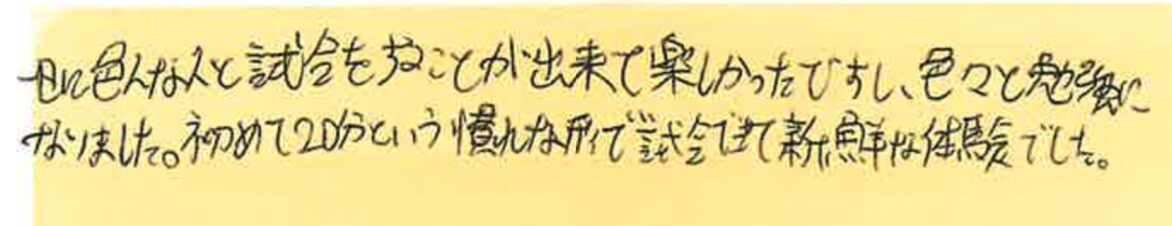 一日に色んな人と試合をすることが出来て楽しかったですし、色々と勉強に
なりました。初めて20分という慣れない形で試合できて新鮮な体験でした。